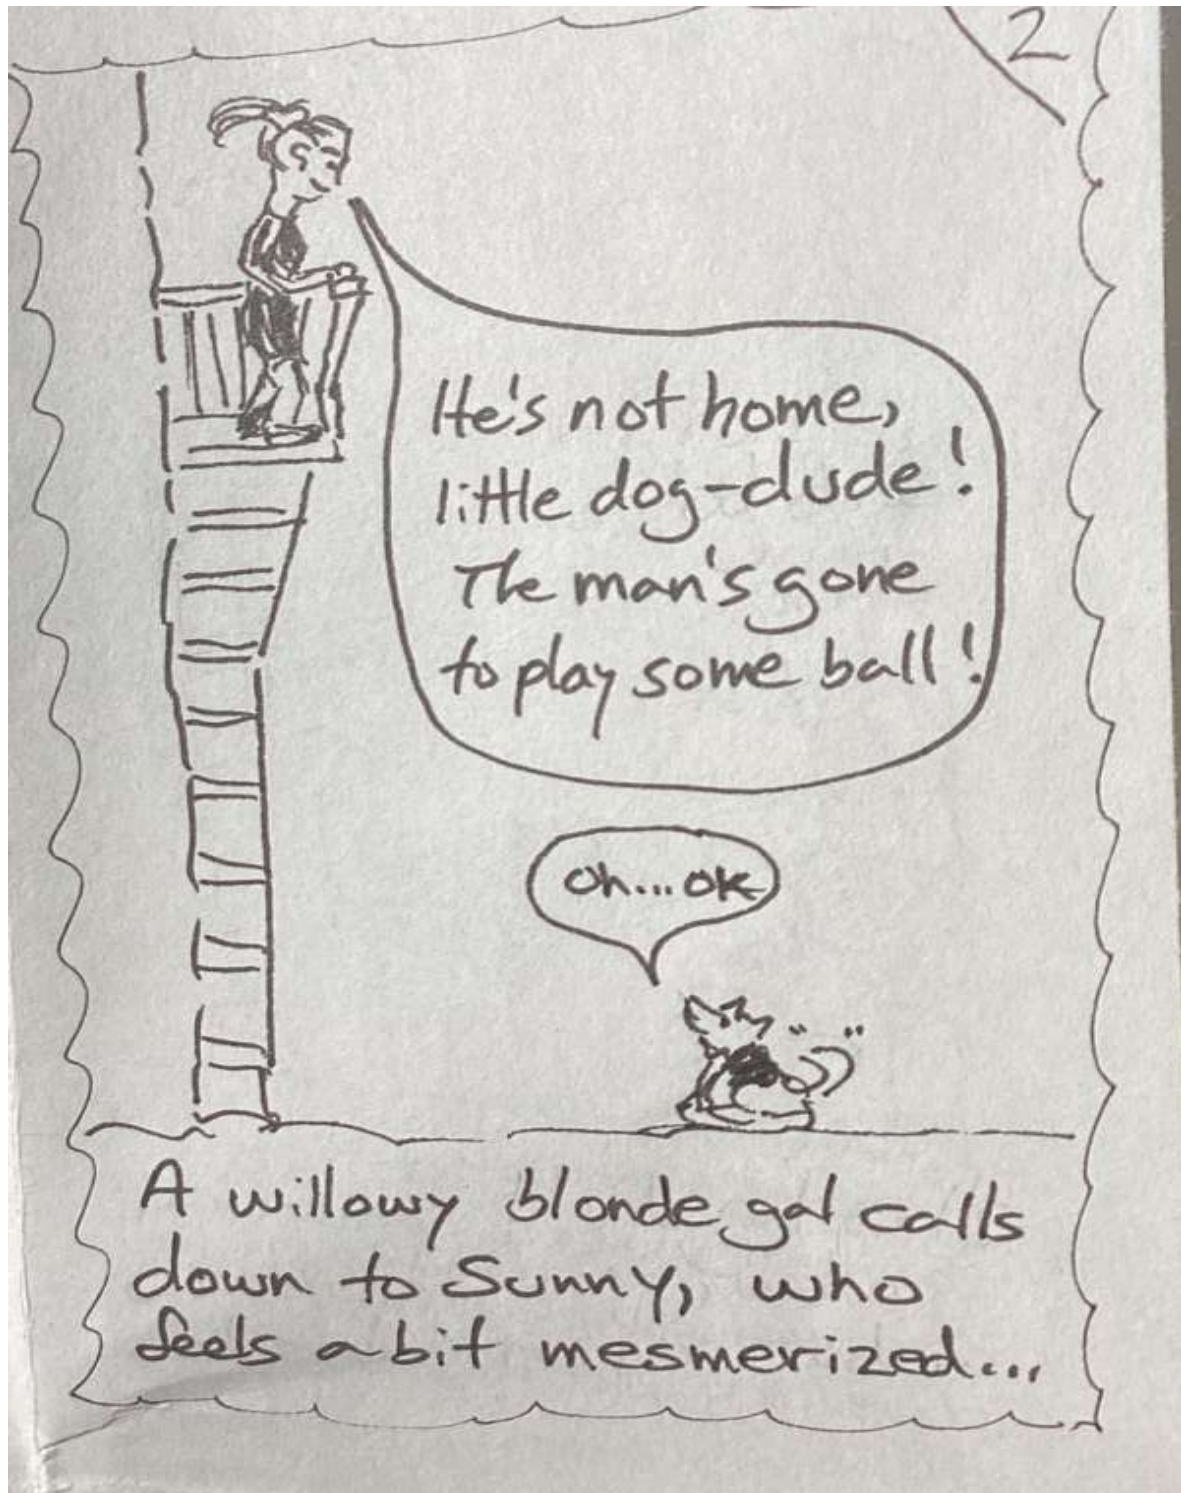 2
He's not home,
little dog-dude!
The man's gone
to play some ball!
oh... ok
A willowy blonde gal calls
down to Sunny, who
feels a bit mesmerized...